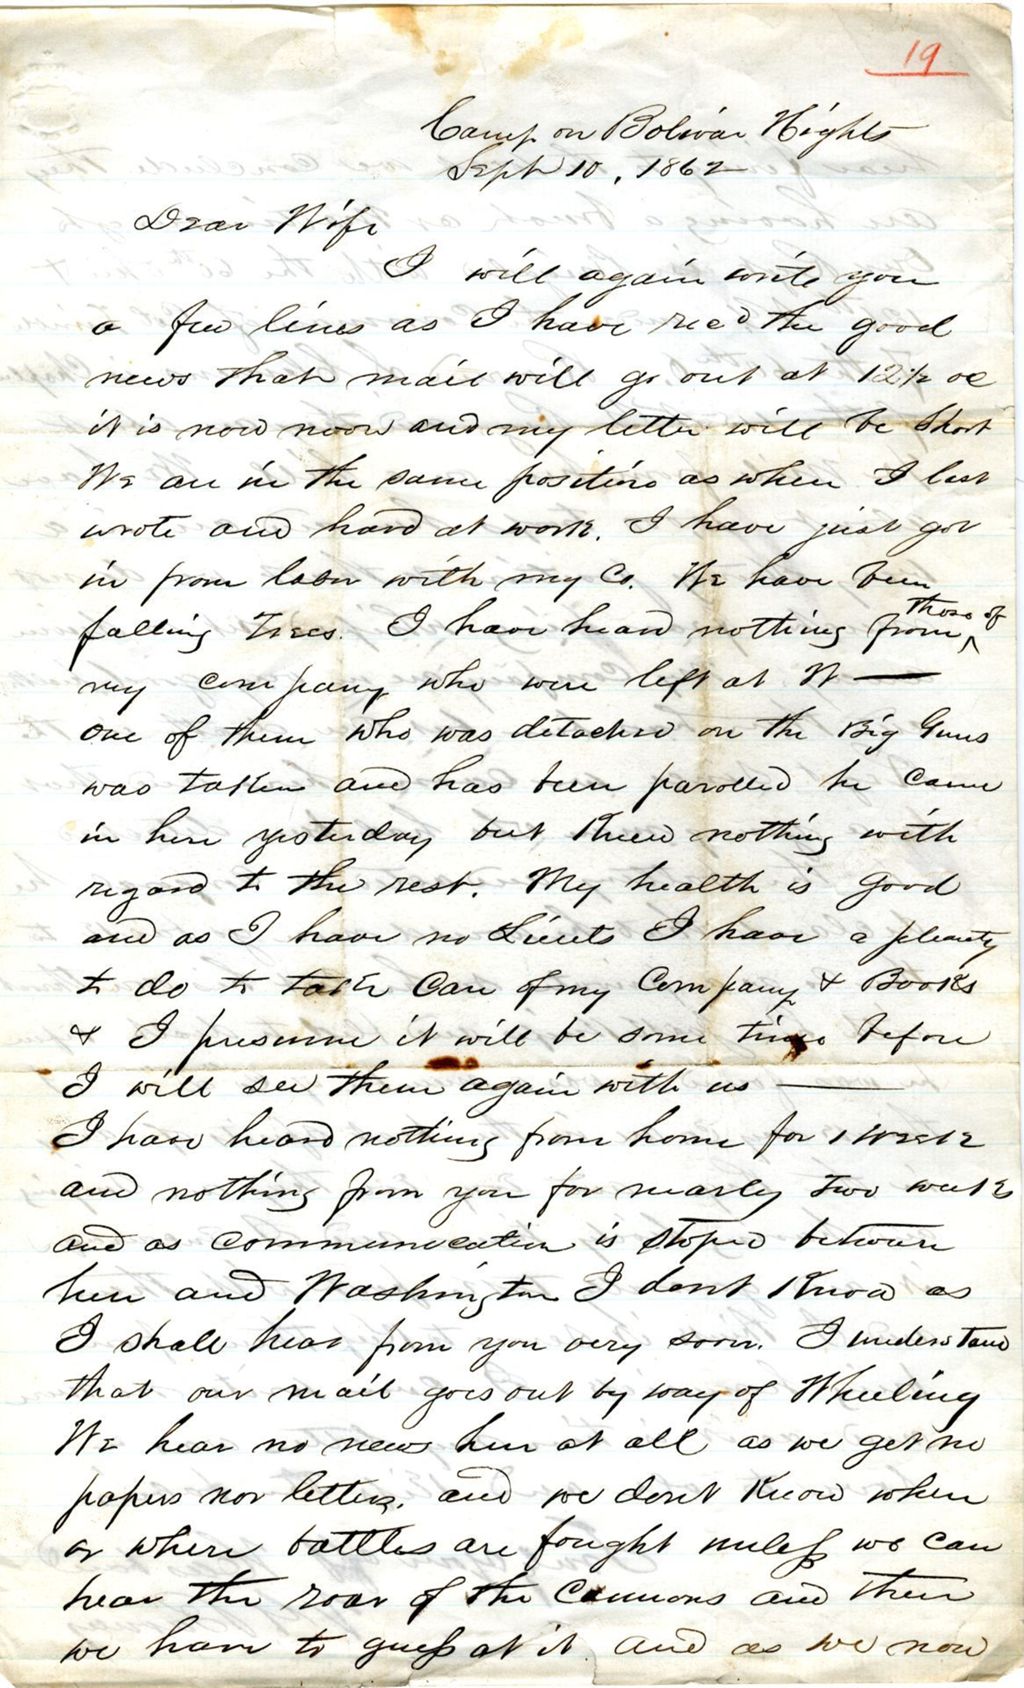 19
Camp on Bolivar Hights
Sept 10, 1862
Dear Wife
I will again write you
a few lines as I have recd the good
news that mail will go out at 12½ oc
it is now noon and my letter will be short
We are in the same position as when I last
wrote and hard at work. I have just got
in from labor with my Co. We have been
falling Trees. I have heard nothing from those of
my company who were left at W——
one of them who was detached on the Big Guns
was taken and has been parolled he came
in here yesterday but knew nothing with
regard to the rest. My health is good
and as I have no Lieuts I have a plenty
to do to take care of my company & Books
& I presume it will be some time before
I will see them again with us ——
I have heard nothing from home for 1 week
and nothing from you for nearly two weeks
and as communication is stoped between
here and Washington I dont know as
I shall hear from you very soon. I understand
that our mail goes out by way of Wheeling
We hear no news here at all as we get no
papers nor letters. and we dont know when
or where battles are fought unless we can
hear the roar of the cannons and then
we have to guess at it and as we now